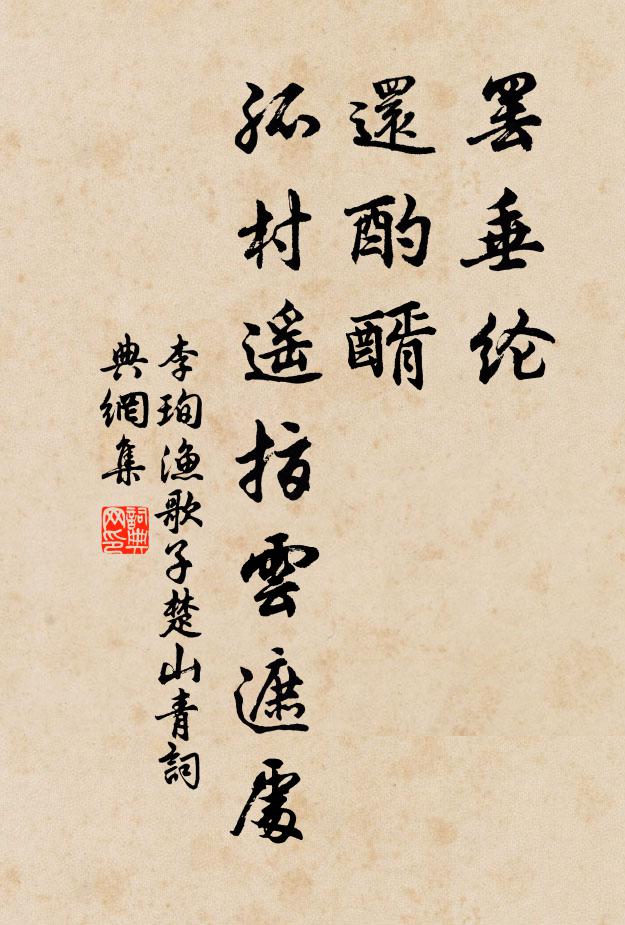 罢垂纶
還酌醑
孤村遥指雲遮處
李珣漁歌子楚山青詞
典網集
詞典网印